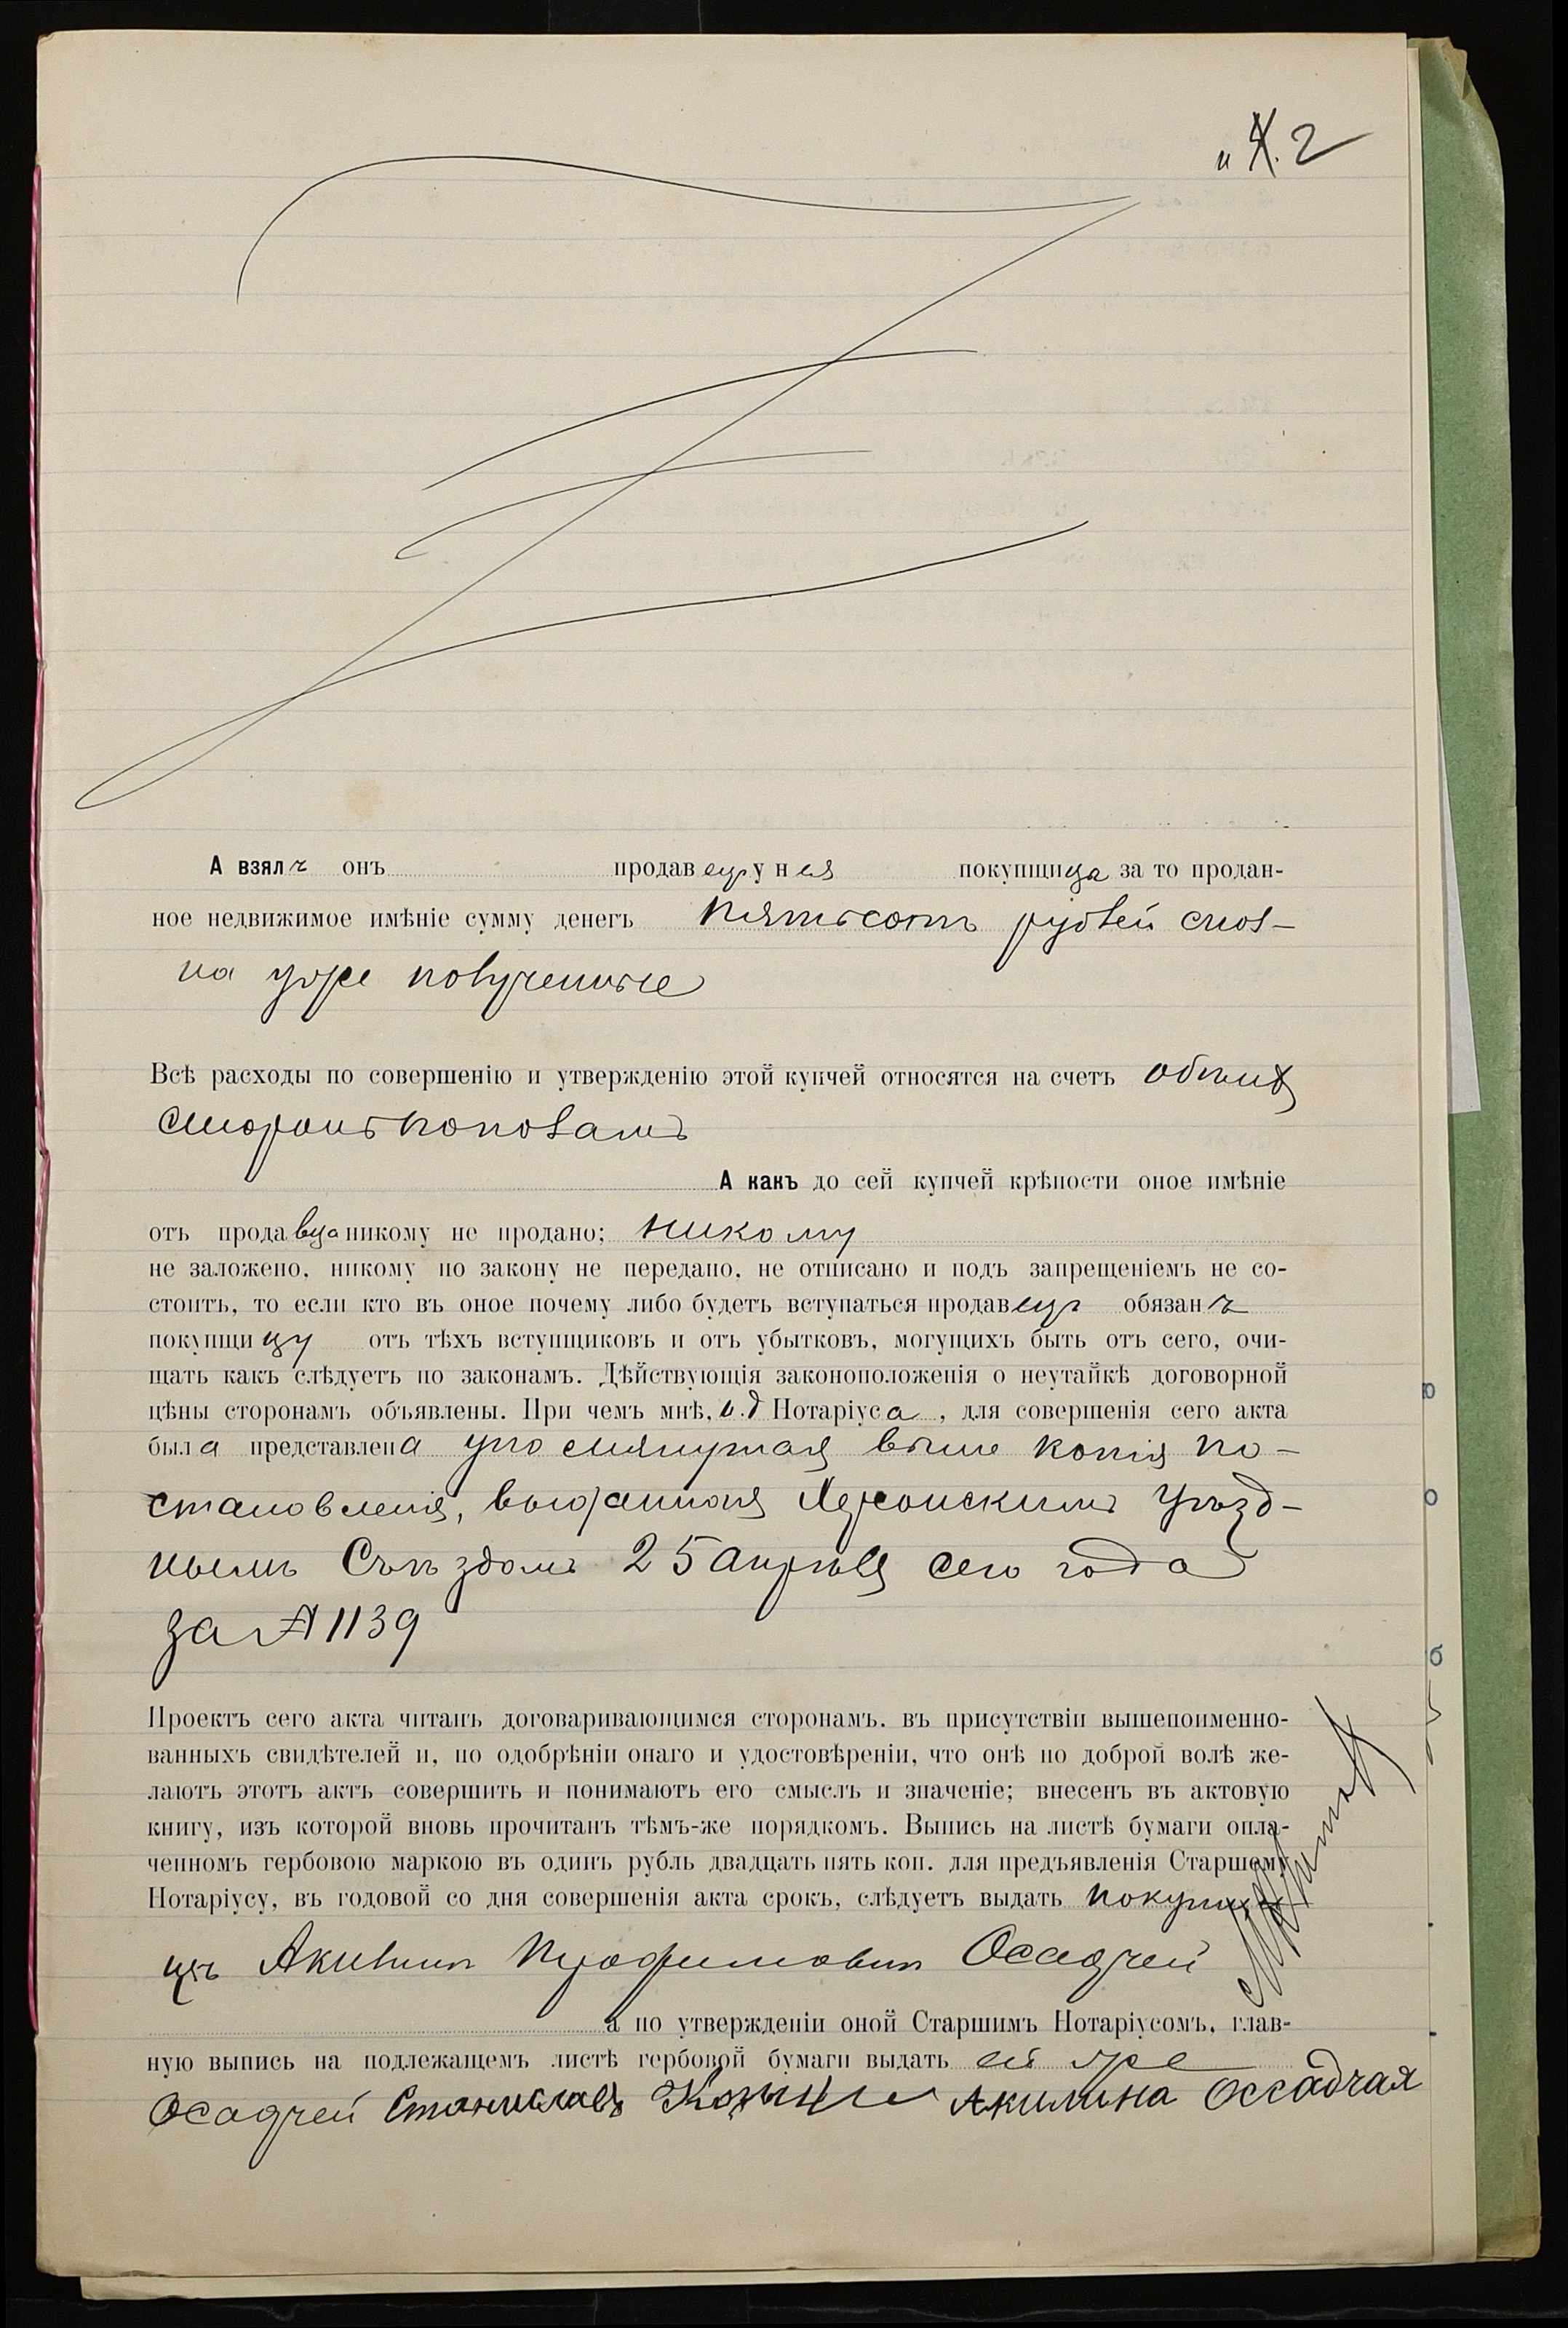 2
А взялъ онъ продавецъ у нея покупщица за то продан-
ное недвижимое имѣніе сумму денегъ пятьсотъ рублей спол-
на уже полученные
Всѣ расходы по совершенію и утвержденію этой купчей относятся на счетъ обѣихъ
сторонъ пополамъ
А какъ до сей купчей крѣпости оное имѣніе
отъ продавца никому не продано; никому
не заложено, никому по закону не передано, не отписано и подъ запрещеніемъ не со-
стоитъ, то если кто въ оное почему либо будетъ вступаться продавецъ обязанъ
покупщицу отъ тѣхъ вступщиковъ и отъ убытковъ, могущихъ быть отъ сего, очи-
щать какъ слѣдуетъ по законамъ. Дѣйствующія законоположенія о неутайкѣ договорной
цѣны сторонамъ объявлены. При чемъ мнѣ, и.д Нотаріуса, для совершенія сего акта
была представлена упомянутая выше копія по-
становленія, выданная Херсонскимъ Уѣзд-
нымъ Съѣздомъ 25 апрѣля сего года
за № 1139
Проектъ сего акта читанъ договаривающимся сторонамъ. въ присутствіи вышепоименно-
ванныхъ свидѣтелей и, по одобрѣніи онаго и удостовѣреніи, что онѣ по доброй волѣ же-
лаютъ этотъ актъ совершить и понимаютъ его смыслъ и значеніе; внесенъ въ актовую
книгу, изъ которой вновь прочитанъ тѣмъ-же порядкомъ. Выпись на листѣ бумаги опла-
ченномъ гербовою маркою въ одинъ рубль двадцать пять коп. для предъявленія Старшему
Нотаріусу, въ годовой со дня совершенія акта срокъ, слѣдуетъ выдать покупщи-
цѣ Акилинѣ Трофимовнѣ Осадчей
а по утвержденіи оной Старшимъ Нотаріусомъ, глав-
ную выпись на подлежащемъ листѣ гербовой бумаги выдать ей же
Осадчей Станиславъ Акилина Оссадчая